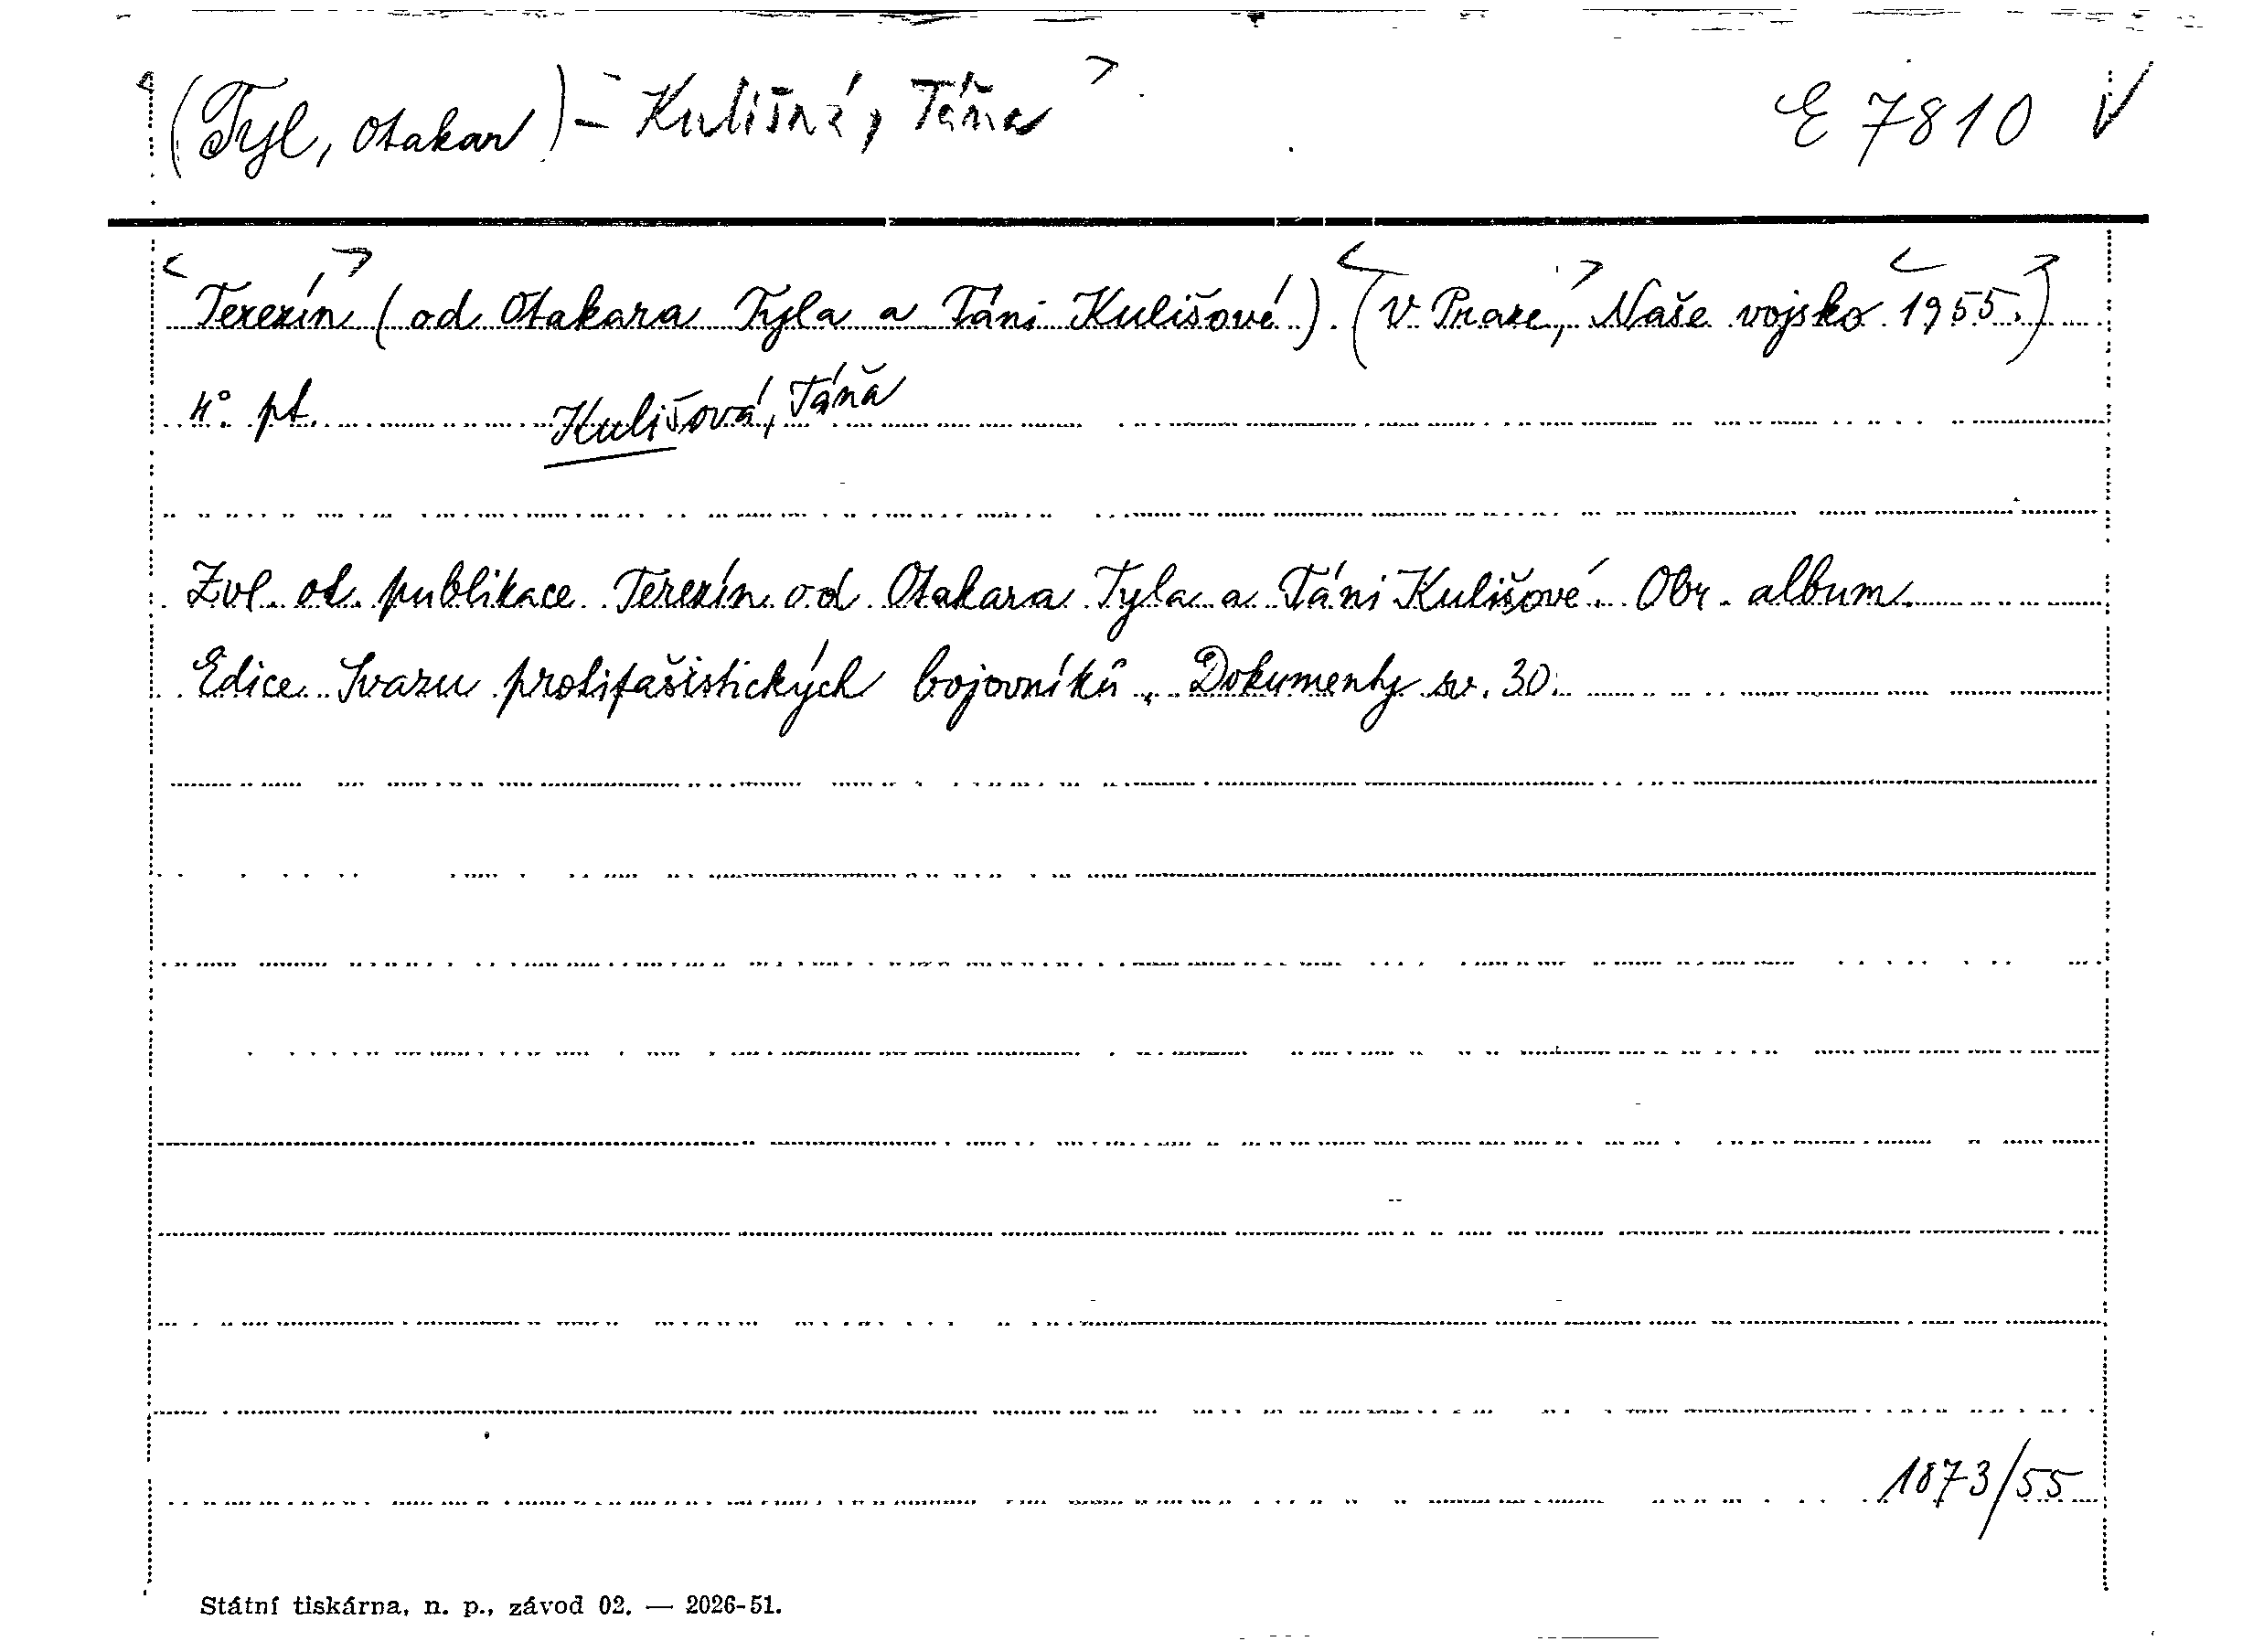 <(Tyl, Otakar) - Kulišná, Táňa> E 7810 V
<Terezín> (od Otakara Tyla a Táni Kulišové). <(V Praze,> Naše vojsko <1955.)>
4°. pt. Kulišová, Táňa
Zvl. ot. publikace Terezín od Otakara Tyla a Táni Kulišové. Obr. album.
Edice Svazu protifašistických bojovníků, Dokumenty sv. 30.
1873/55
Státní tiskárna, n. p., závod 02. — 2026-51.